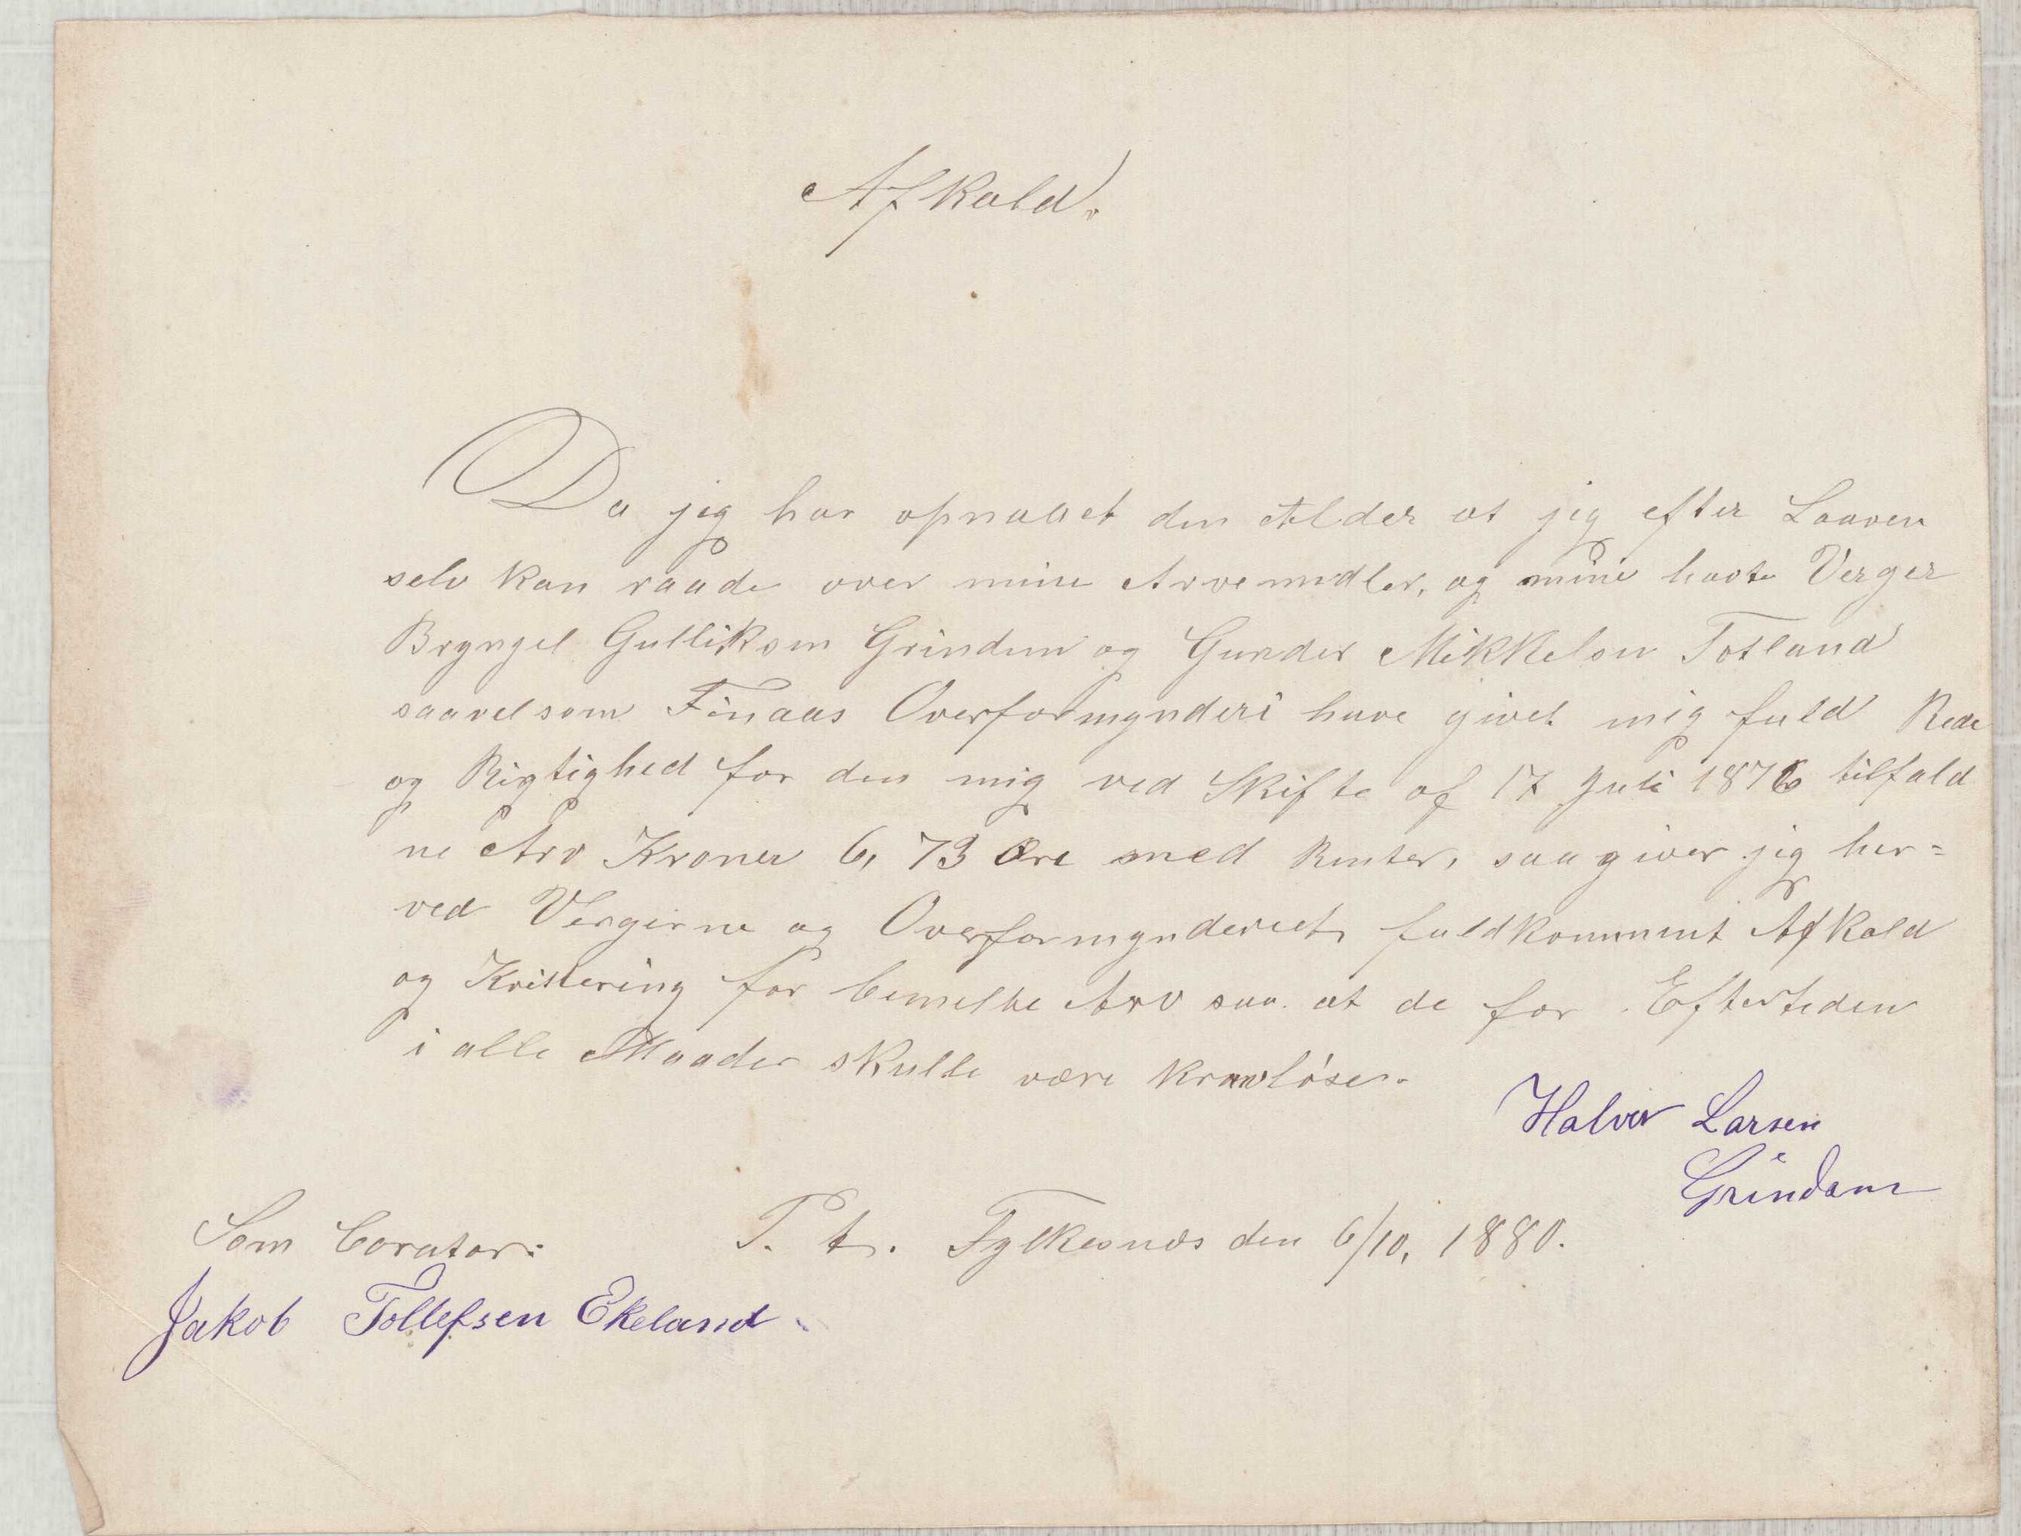 Afkald.
Da jeg har opnaaet den Alder at jeg efter Laaven
selv kan raade over mine Arvemidler, og mine havte Verger
Bryngel Gulliksen Grindem og Gunder Mikkelsen Totland
saavelsom Finaas Overformynderi have givet mig fuld Rede
og Rigtighed for den mig ved Skifte af 17 Juli 1876 tilfald
ne Arv Kroner 6, 73 Øre med Renter, saa giver jeg her=
ved Vergerne og Overformynderiet fuldkomment Afkald
og Kvittering for bemelte Arv saa at de for Eftertiden
i alle Maader skulle være kravløse.
Halvor Larsen
Grindem
Som Corator: T. t. Fylkesnæs den 6/10, 1880.
Jakob Tollefsen Ekeland